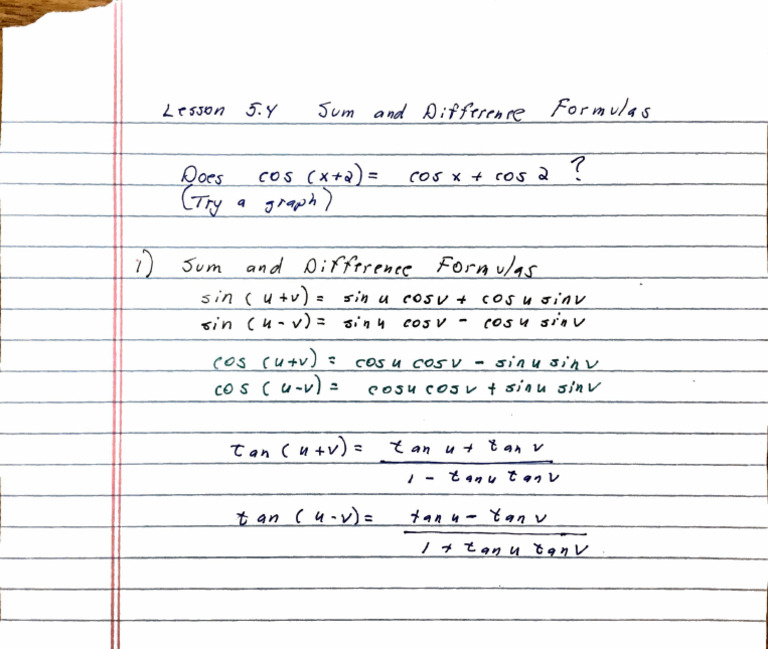 Lesson 5.4 Sum and Difference Formulas
Does cos (x+2) = cos x + cos 2 ?
(Try a graph)
1) Sum and Difference Formulas
sin (u+v) = sin u cos v + cos u sin v
sin (u-v) = sin u cos v - cos u sin v
cos (u+v) = cos u cos v - sin u sin v
cos (u-v) = cos u cos v + sin u sin v
tan (u+v) = tan u + tan v
1 - tan u tan v
tan (u-v) = tan u - tan v
1 + tan u tan v